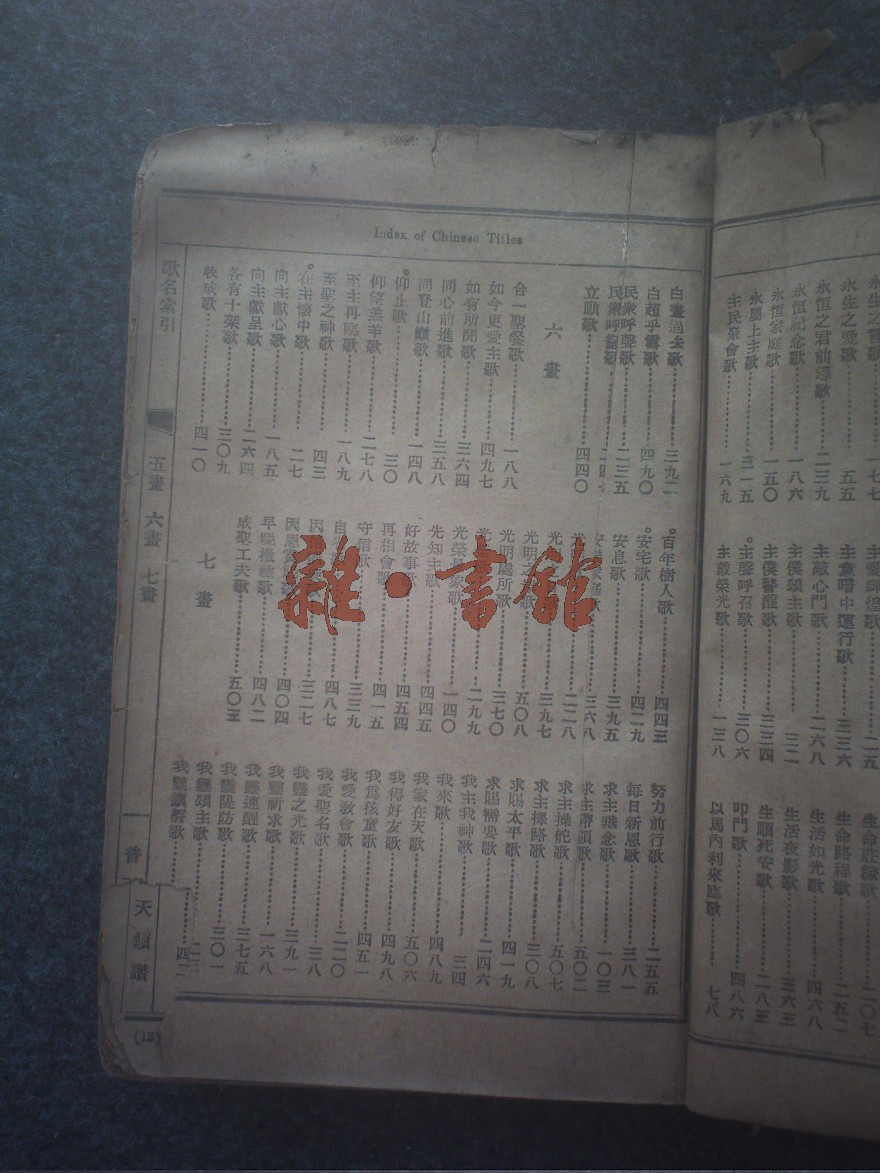 Index of Chinese Titles
永生之歌
永生之愛歌……五五
永恒之君前導歌……二三九
永恒紀念歌……一八六
永恒家庭歌……一五〇
永屬上主歌……三一五
主民聚會歌……一六九
主愛輝煌歌……一一五
主嘗暗中運行歌……三三六
主敲心門歌……二六八
主僕頌主歌……三二
主僕警醒歌……三三四
主聲呼召歌……三〇六
主戴榮光歌……一三八
生命莊稼歌……二〇七
生命路程歌……二五二
生活如光歌……四六八
生活夜影歌……三六三
生順死安歌……二八三
叩門歌……四八六
以馬內利來臨歌……七八
白晝過去歌……三九二
白超乎雪歌……四九〇
民衆呼聲歌……二三五
立願歌……四四〇
六畫
合一聖餐歌……一八八
如今更愛主歌……四九七
如有所聞歌……三六四
同心前進歌……三五八
同登山巔歌……一四八
仰止歌……三〇
仰望羔羊歌……二七八
至主再臨歌……一八九
至聖之神歌……四三
在主懷中歌……二七
向主獻心歌……一八五
向主獻呈歌……二六四
各有十架歌……三〇九
收成歌……四一〇
百年樹人歌……四四三
安宅歌……四二九
安息歌……三九五
三六八
一二八
三九七
光明之
五〇八
光明處所歌……三七〇
二九九
光榮
一四〇
先知主歌……四四五
好故事歌……四五四
再相會歌……四一五
守信歌……三三九
四八七
三二七
四〇四
早晚澈禱歌……四八二
成聖工夫歌……五〇三
七畫
努力前行歌……二五五
每日新恩歌……三八一
求主垂念歌……一〇三
求主帶領歌……五〇二
求主操舵歌……五〇七
求主操路歌……三〇八
求賜太平歌……四一九
求賜需要歌……二四六
我主我神歌……三四
我來歌……四八九
我家在天歌……五〇六
我得好友歌……四九八
我爲孩童歌……四五一
我愛教會歌……二二〇
我愛聖名歌……三八
我魂之光歌……三九一
我魂祈求歌……一六八
我魂速醒歌……三七五
我魂隄防歌……三〇一
我魂頌主歌
歌名索引
五畫 六畫 七畫
一
普
天
讚
(18)
雜·書館